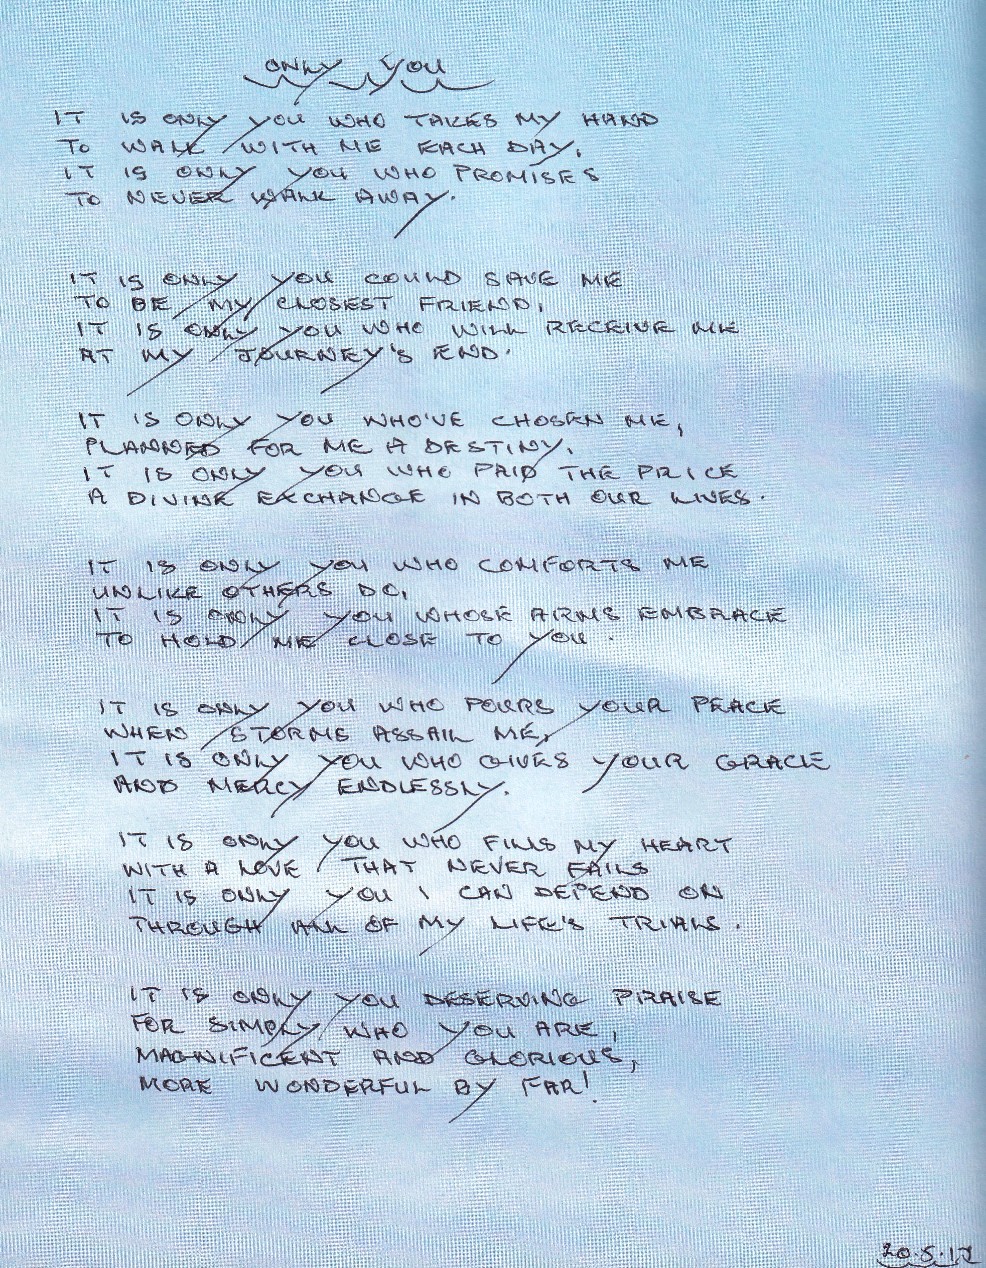 ONLY YOU
IT IS ONLY YOU WHO TAKES MY HAND
TO WALK WITH ME EACH DAY,
IT IS ONLY YOU WHO PROMISES
TO NEVER WALK AWAY.
IT IS ONLY YOU COULD SAVE ME
TO BE MY CLOSEST FRIEND,
IT IS ONLY YOU WHO WILL RECEIVE ME
AT MY JOURNEY'S END.
IT IS ONLY YOU WHO'VE CHOSEN ME,
PLANNED FOR ME A DESTINY.
IT IS ONLY YOU WHO PAID THE PRICE
A DIVINE EXCHANGE IN BOTH OUR LIVES.
IT IS ONLY YOU WHO COMFORTS ME
UNLIKE OTHERS DO,
IT IS ONLY YOU WHOSE ARMS EMBRACE
TO HOLD ME CLOSE TO YOU.
IT IS ONLY YOU WHO POURS YOUR PEACE
WHEN STORMS ASSAIL ME,
IT IS ONLY YOU WHO GIVES YOUR GRACE
AND MERCY ENDLESSLY.
IT IS ONLY YOU WHO FILLS MY HEART
WITH A LOVE THAT NEVER FAILS
IT IS ONLY YOU I CAN DEPEND ON
THROUGH ALL OF MY LIFE'S TRIALS.
IT IS ONLY YOU DESERVING PRAISE
FOR SIMPLY WHO YOU ARE,
MAGNIFICENT AND GLORIOUS,
MORE WONDERFUL BY FAR!